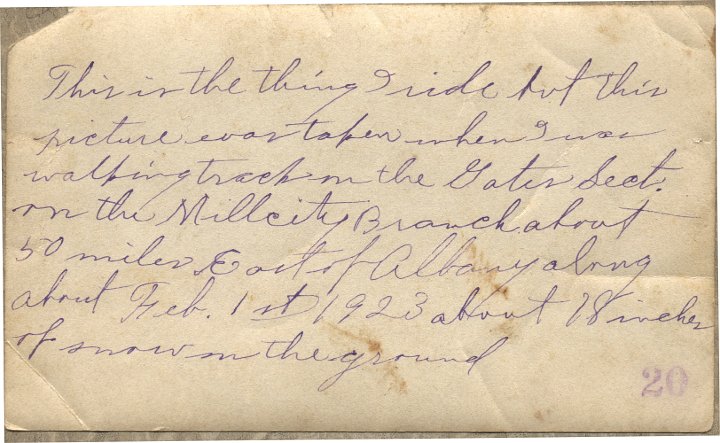 This is the thing I ride but this
picture was taken when I was
walking track on the Gates Sect.
on the Millcity Branch about
50 miles East of Albany along
about Feb. 1st 1923 about 18 inches
of snow on the ground
20